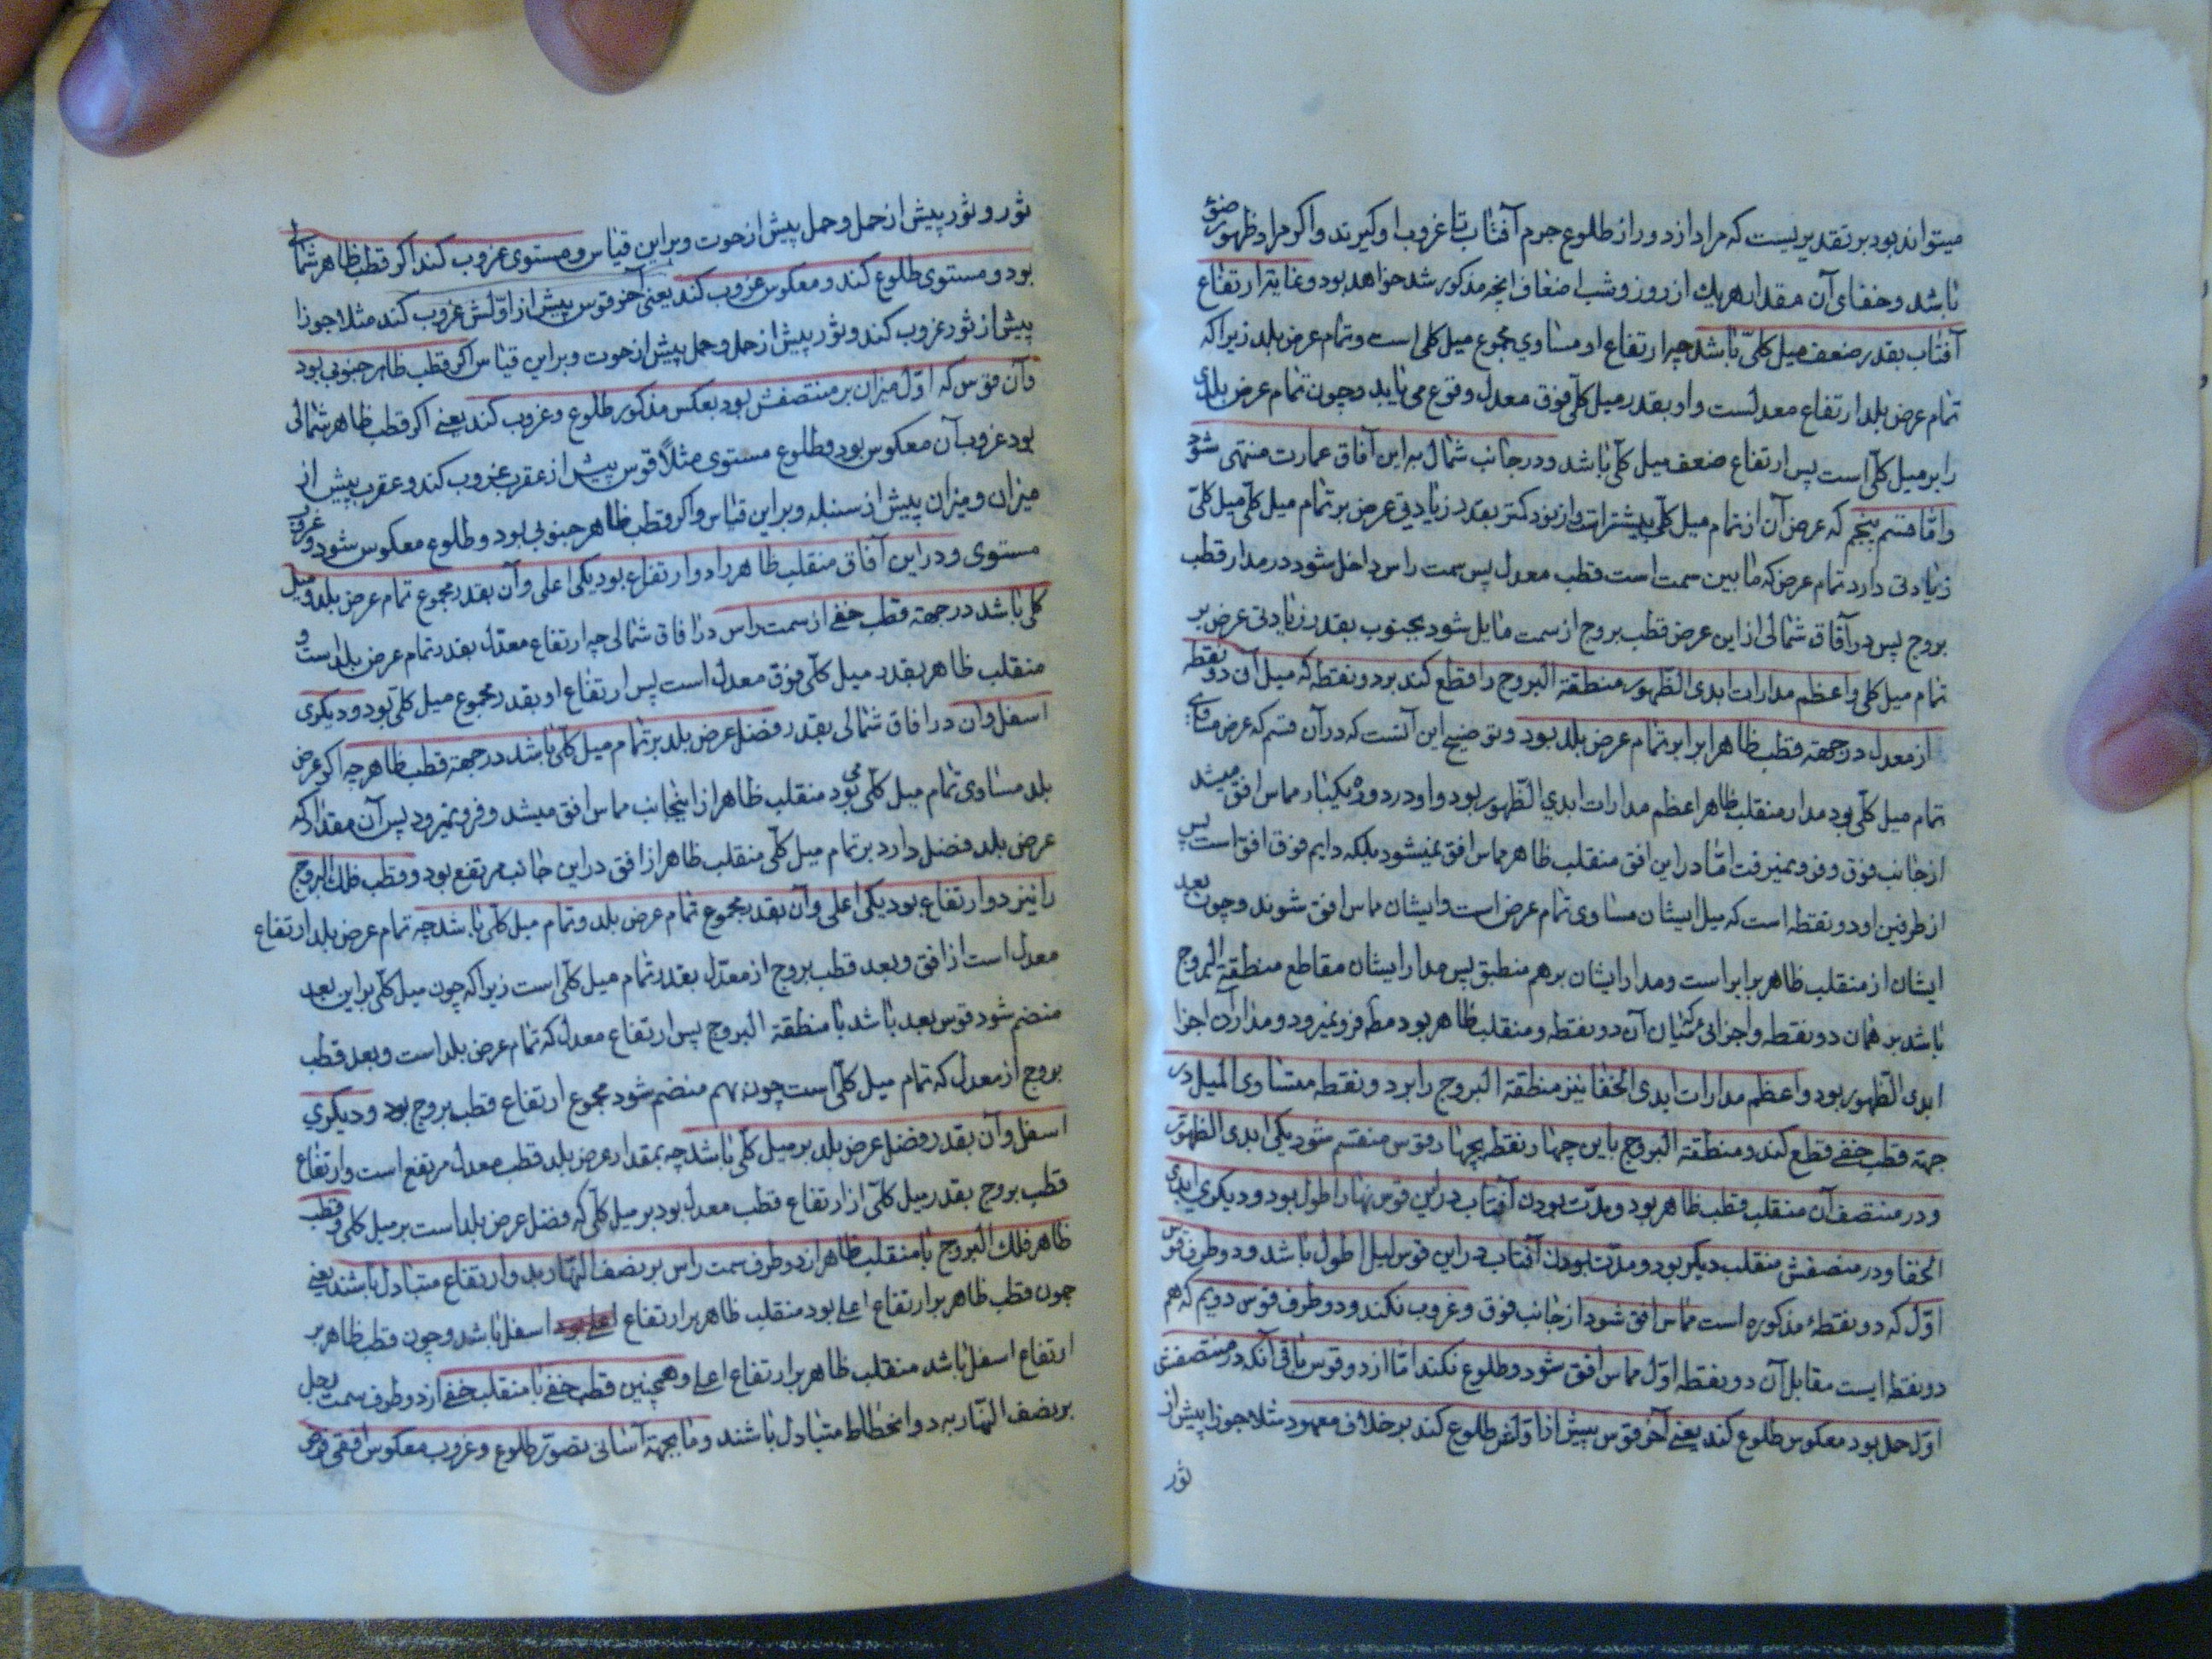 میتواند بود بر تقدیریست که مراد از دور از طلوع جرم آفتاب تا غروب او گیرند و اگر مراد ظهور ضوء
باشد و خفای آن مقدار هر یک از روز و شب اضعاف آنچه مذکور شد خواهد بود و غایت ارتفاع
آفتاب بقدر ضعف میل کلی باشد چه ارتفاع او مساوی مجموع میل کلی است و تمام عرض بلد زیرا که
تمام عرض بلد ارتفاع معدلست و او بقدر میل کلی فوق معدل وقوع می یابد و چون تمام عرض بلدی
را بر میل کلی است پس ارتفاع ضعف میل کلی باشد و در جانب شمال به این آفاق عمارت منتهی شود
و اما قسم پنجم که عرض آن از تمام میل کلی بیشتر است و از نود کمتر بقدر زیادتی عرض بر تمام میل کلی میل کلی
زیادتی دارد تمام عرض که ما بین سمت است قطب معدل پس سمت راس داخل شود در مدار قطب
بروج پس در آفاق شمالی از این عرض قطب بروج از سمت مایل شود بجنوب بقدر زیادتی عرض بر
تمام میل کلی و اعظم مدارات ابدی الظهور منطقة البروج را قطع کند بر دو نقطه که میل آن دو نقطه
از معدل در جهة قطب ظاهر برابر تمام عرض بلد بود و توضیح این آنست که در آن قسم که عرض مساوی
تمام میل کلی بود مدار منقلب ظاهر اعظم مدارات ابدی الظهور بود و او در دوره یکبار مماس افق میشد
از جانب فوق و فرو نمیرفت اما در این افق منقلب ظاهر مماس افق نمیشود بلکه دایم فوق افق است پس
از طرفین او دو نقطه است که میل ایشان مساوی تمام عرض است و ایشان مماس افق شوند و چون بعد
ایشان از منقلب ظاهر برابر است و مدار ایشان بر هم منطبق پس مدار ایشان مقاطع منطقة البروج
باشد بر همان دو نقطه و اجزائی که میان آن دو نقطه و منقلب ظاهر بود مطلقا فرو نمیرود و مدار آن اجزا
ابدی الظهور بود و اعظم مدارات ابدی الخفا نیز منطقة البروج را بر دو نقطه متساوی المیل در
جهة قطب خفی قطع کند و منطقة البروج باین چهار نقطه بچهار قوس منقسم شود یکی ابدی الظهور
و در منتصف آن منقلب قطب ظاهر بود و مدّت بودن آفتاب در این قوس نهار اطول بود و دیگری ابدی
الخفا و در منتصفش منقلب دیگر بود و مدّت بودن آفتاب در این قوس لیل اطول باشد و دو طرف قوس
اوّل که دو نقطهٔ مذکوره است مماس افق شود از جانب فوق و غروب نکند و دو طرف قوس دویم که هم
دو نقطه ایست مقابل آن دو نقطه اوّل مماس افق شود و طلوع نکند اما از دو قوس باقی آنکه در منتصفش
اوّل حمل بود معکوس طلوع کند یعنی آخر قوس پیش از اوّلش طلوع کند بر خلاف معهود مثلا جوزا پیش از
ثور
ثور و ثور پیش از حمل و حمل پیش از حوت و بر این قیاس و مستوی غروب کند اگر قطب ظاهر شمالی
بود و مستوی طلوع کند و معکوس غروب کند یعنی آخر قوس پیش از اوّلش غروب کند مثلا جوزا
پیش از ثور غروب کند و ثور پیش از حمل و حمل پیش از حوت و بر این قیاس اگر قطب ظاهر جنوبی بود
و آن قوس که اوّل میزان بر منتصفش بود بعکس مذکور طلوع و غروب کند یعنی اگر قطب ظاهر شمالی
بود غروب آن معکوس بود و طلوع مستوی مثلاً قوس پیش از عقرب غروب کند و عقرب پیش از
میزان و میزان پیش از سنبله و بر این قیاس و اگر قطب ظاهر جنوبی بود و طلوع معکوس شود و غروب
مستوی و در این آفاق منقلب ظاهر را دو ارتفاع بود یکی اعلی و آن بقدر مجموع تمام عرض بلد و میل
کلی باشد در جهة قطب خفی از سمت راس در افاق شمالی چه ارتفاع معدّل بقدر تمام عرض بلد است و
منقلب ظاهر بقدر میل کلی فوق معدل است پس ارتفاع او بقدر مجموع میل کلی بود و دیگری
اسفل و آن در افاق شمالی بقدر فضل عرض بلد بر تمام میل کلی باشد در جهة قطب ظاهر چه اگر عرض
بلد مساوی تمام میل کلی می بود منقلب ظاهر از اینجانب مماس افق میشد و فرو نمیرود پس آن مقدار که
عرض بلد فضل دارد بر تمام میل کلی منقلب ظاهر از افق در این جانب مرتفع بود و قطب فلک البروج
را نیز دو ارتفاع بود یکی اعلی و آن بقدر مجموع تمام عرض بلد و تمام میل کلی باشد چه تمام عرض بلد ارتفاع
معدل است از افق و بعد قطب بروج از معدّل بقدر تمام میل کلی است زیرا که چون میل کلی بر این بعد
منضم شود قوس بعد باشد با منطقة البروج پس ارتفاع معدل که تمام عرض بلد است و بعد قطب
بروج از معدل که تمام میل کلی است چون بهم منضم شود مجموع ارتفاع قطب بروج بود و دیگری
اسفل و آن بقدر فضل عرض بلد بر میل کلی باشد چه بمقدار عرض بلد قطب معدل مرتفع است و ارتفاع
قطب بروج بقدر میل کلی از ارتفاع قطب معدل بود بر میل کلی که فضل عرض بلد است بر میل کلی و قطب
ظاهر فلک البروج با منقلب ظاهر از دو طرف سمت راس بر نصف النهار بدو ارتفاع متبادل باشند یعنی
چون قطب ظاهر بر ارتفاع اعلی بود منقلب ظاهر بر ارتفاع اعلی بود اسفل باشد و چون قطب ظاهر بر
ارتفاع اسفل باشد منقلب ظاهر بر ارتفاع اعلی و همچنین قطب خفی با منقلب خفی از دو طرف سمت رجل
بر نصف النهار به دو انحطاط متبادل باشند و ما بجهة آسانی تصوّر طلوع و غروب معکوس افقی فرض